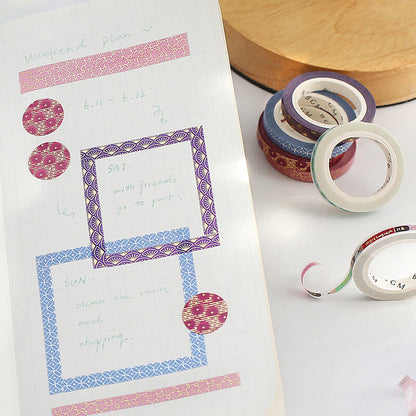 weekend plan ~
6.11 - 6.12
SAT.
with friends
go to park.
SUN.
clean the room
and
shopping.
BGM
BGM